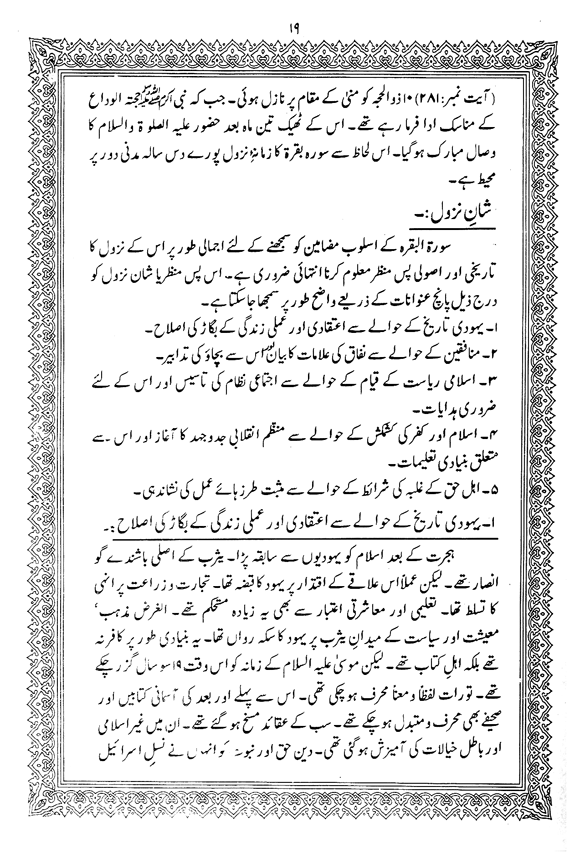 ۱۹
(آیت نمبر:۲۸۱) ۱۰ ذوالحجہ کو منیٰ کے مقام پر نازل ہوئی۔ جب کہ نبی اکرم ﷺ حجتہ الوداع
کے مناسک ادا فرما رہے تھے۔ اس کے ٹھیک تین ماہ بعد حضور علیہ الصلوۃ والسلام کا
وصال مبارک ہوگیا۔ اس لحاظ سے سورہ بقرۃ کا زمانۂ نزول پورے دس سالہ مدنی دور پر
محیط ہے۔
شانِ نزول:۔
سورۃ البقرہ کے اسلوب مضامین کو سمجھنے کے لئے اجمالی طور پر اس کے نزول کا
تاریخی اور اصولی پس منظر معلوم کرنا انتہائی ضروری ہے۔ اس پس منظر یا شان نزول کو
درج ذیل پانچ عنوانات کے ذریعے واضح طور پر سمجھا جا سکتا ہے۔
۱۔ یہودی تاریخ کے حوالے سے اعتقادی اور عملی زندگی کے بگاڑ کی اصلاح۔
۲۔ منافقین کے حوالے سے نفاق کی علامات کا بیان اور اس سے بچاؤ کی تدابیر۔
۳۔ اسلامی ریاست کے قیام کے حوالے سے اجتماعی نظام کی تاسیس اور اس کے لئے
ضروری ہدایات۔
۴۔ اسلام اور کفر کی کشمکش کے حوالے سے منظم انقلابی جدوجہد کا آغاز اور اس سے
متعلق بنیادی تعلیمات۔
۵۔ اہل حق کے غلبہ کی شرائط کے حوالے سے مثبت طرز ہائے عمل کی نشاندہی۔
۱۔ یہودی تاریخ کے حوالے سے اعتقادی اور عملی زندگی کے بگاڑ کی اصلاح:۔
ہجرت کے بعد اسلام کو یہودیوں سے سابقہ پڑا۔ یثرب کے اصلی باشندے گو
انصار تھے۔ لیکن عملاً اس علاقے کے اقتدار پر یہود کا قبضہ تھا۔ تجارت و زراعت پر انہی
کا تسلط تھا۔ تعلیمی اور معاشرتی اعتبار سے بھی یہ زیادہ مستحکم تھے۔ الغرض مذہب‘
معیشت اور سیاست کے میدان یثرب پر یہود کا سکہ رواں تھا۔ یہ بنیادی طور پر کافر نہ
تھے بلکہ اہل کتاب تھے۔ لیکن موسیٰ علیہ السلام کے زمانہ کو اس وقت ۱۹ سو سال گزر چکے
تھے۔ تورات لفظاً و معناً محرف ہو چکی تھی۔ اس سے پہلے اور بعد کی آسمانی کتابیں اور
صحیفے بھی محرف و متبدل ہو چکے تھے۔ سب کے عقائد مسخ ہو گئے تھے۔ ان میں غیر اسلامی
اور باطل خیالات کی آمیزش ہو گئی تھی۔ دین حق اور نبوت کو انہوں نے نسل اسرائیل